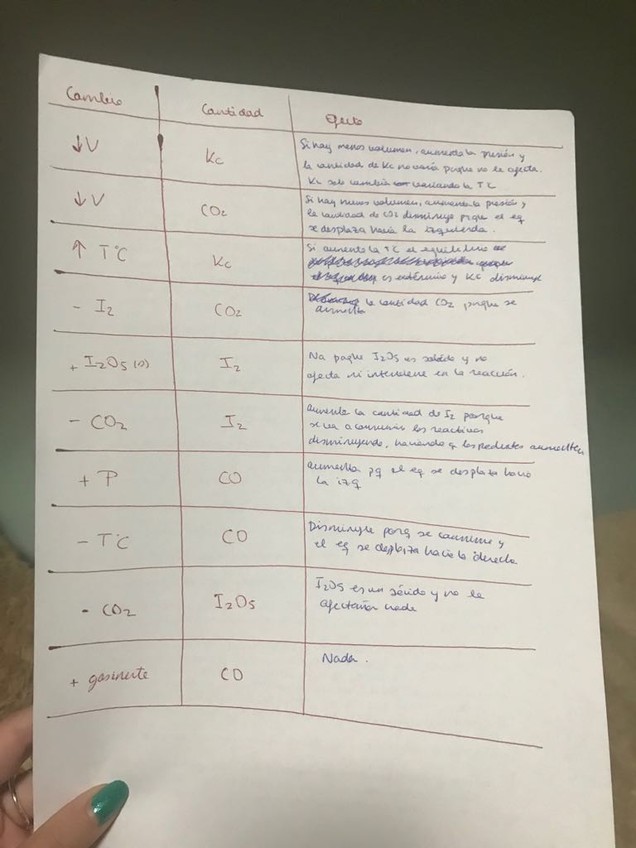 Cambio Cantidad Efecto
↓V Kc Si hay menos volumen, aumenta la presión y
la cantidad de Kc no varía porque no le afecta.
Kc solo cambia variando la TC
↓V CO₂ Si hay menos volumen, aumenta la presión y
la cantidad de CO₂ disminuye porque el eq
se desplaza hacia la izquierda.
↑ T°C Kc Si aumenta la TC el equilibrio
es exotérmico y Kc disminuye
- I₂ CO₂ la cantidad CO₂ porque se
aumenta
+ I₂O₅ (s) I₂ Na porque I₂O₅ es sólido y no
afecta ni interviene en la reacción.
- CO₂ I₂ Aumenta la cantidad de I₂ porque
se va a consumir los reactivos
disminuyendo, haciendo q los productos aumenten
+ P CO Aumenta pq el eq se desplaza hacia
la izq
- T°C CO Disminuye porq se consume y
el eq se desplaza hacia la derecha
- CO₂ I₂O₅ I₂O₅ es un sólido y no le
nada
+ gas inerte CO Nada.